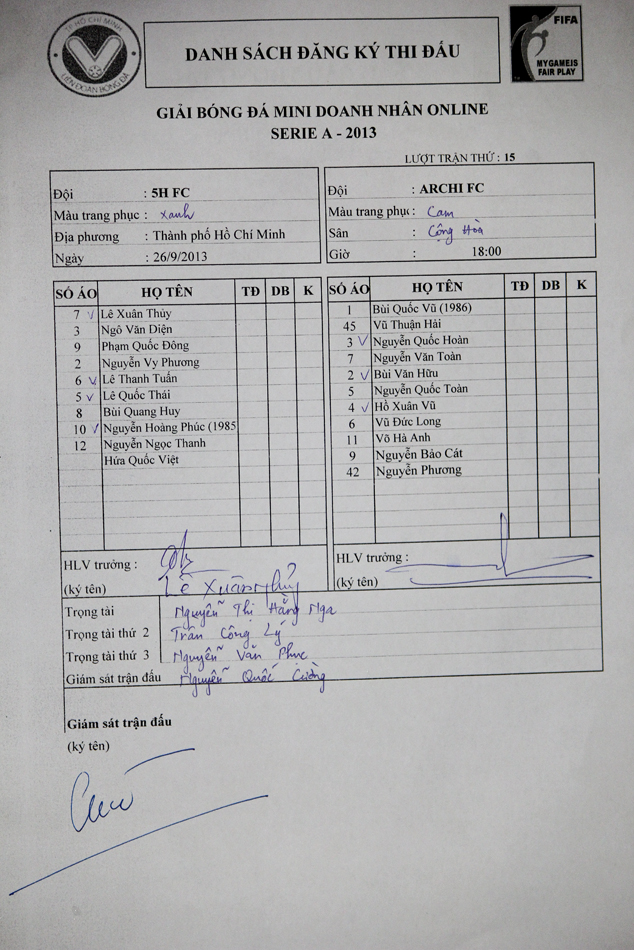 TP HỒ CHÍ MINH
LIÊN ĐOÀN BÓNG ĐÁ
DANH SÁCH ĐĂNG KÝ THI ĐẤU
FIFA
MYGAMEIS
FAIR PLAY
GIẢI BÓNG ĐÁ MINI DOANH NHÂN ONLINE
SERIE A - 2013
LƯỢT TRẬN THỨ : 15
Đội : 5H FC
Màu trang phục : Xanh
Địa phương : Thành phố Hồ Chí Minh
Ngày : 26/9/2013
Đội : ARCHI FC
Màu trang phục : Cam
Sân : Cộng Hòa
Giờ 18:00
SỐ ÁO HỌ TÊN TĐ DB K
7 ✓ Lê Xuân Thủy
3 Ngô Văn Diện
9 Phạm Quốc Đông
2 Nguyễn Vy Phương
6 ✓ Lê Thanh Tuấn
5 ✓ Lê Quốc Thái
8 Bùi Quang Huy
10 ✓ Nguyễn Hoàng Phúc (1985
12 Nguyễn Ngọc Thanh
Hứa Quốc Việt
SỐ ÁO HỌ TÊN TĐ DB K
1 Bùi Quốc Vũ (1986)
45 Vũ Thuận Hải
3 ✓ Nguyễn Quốc Hoàn
7 Nguyễn Văn Toàn
2 ✓ Bùi Văn Hữu
5 Nguyễn Quốc Toàn
4 ✓ Hồ Xuân Vũ
6 Vũ Đức Long
11 Võ Hà Anh
9 Nguyễn Bảo Cát
42 Nguyễn Phương
HLV trưởng :
(ký tên) Lê Xuân Thủy
HLV trưởng :
(ký tên)
Trọng tài Nguyễn Thị Hằng Nga
Trọng tài thứ 2 Trần Công Lý
Trọng tài thứ 3 Nguyễn Văn Phục
Giám sát trận đấu Nguyễn Quốc Cường
Giám sát trận đấu
(ký tên)